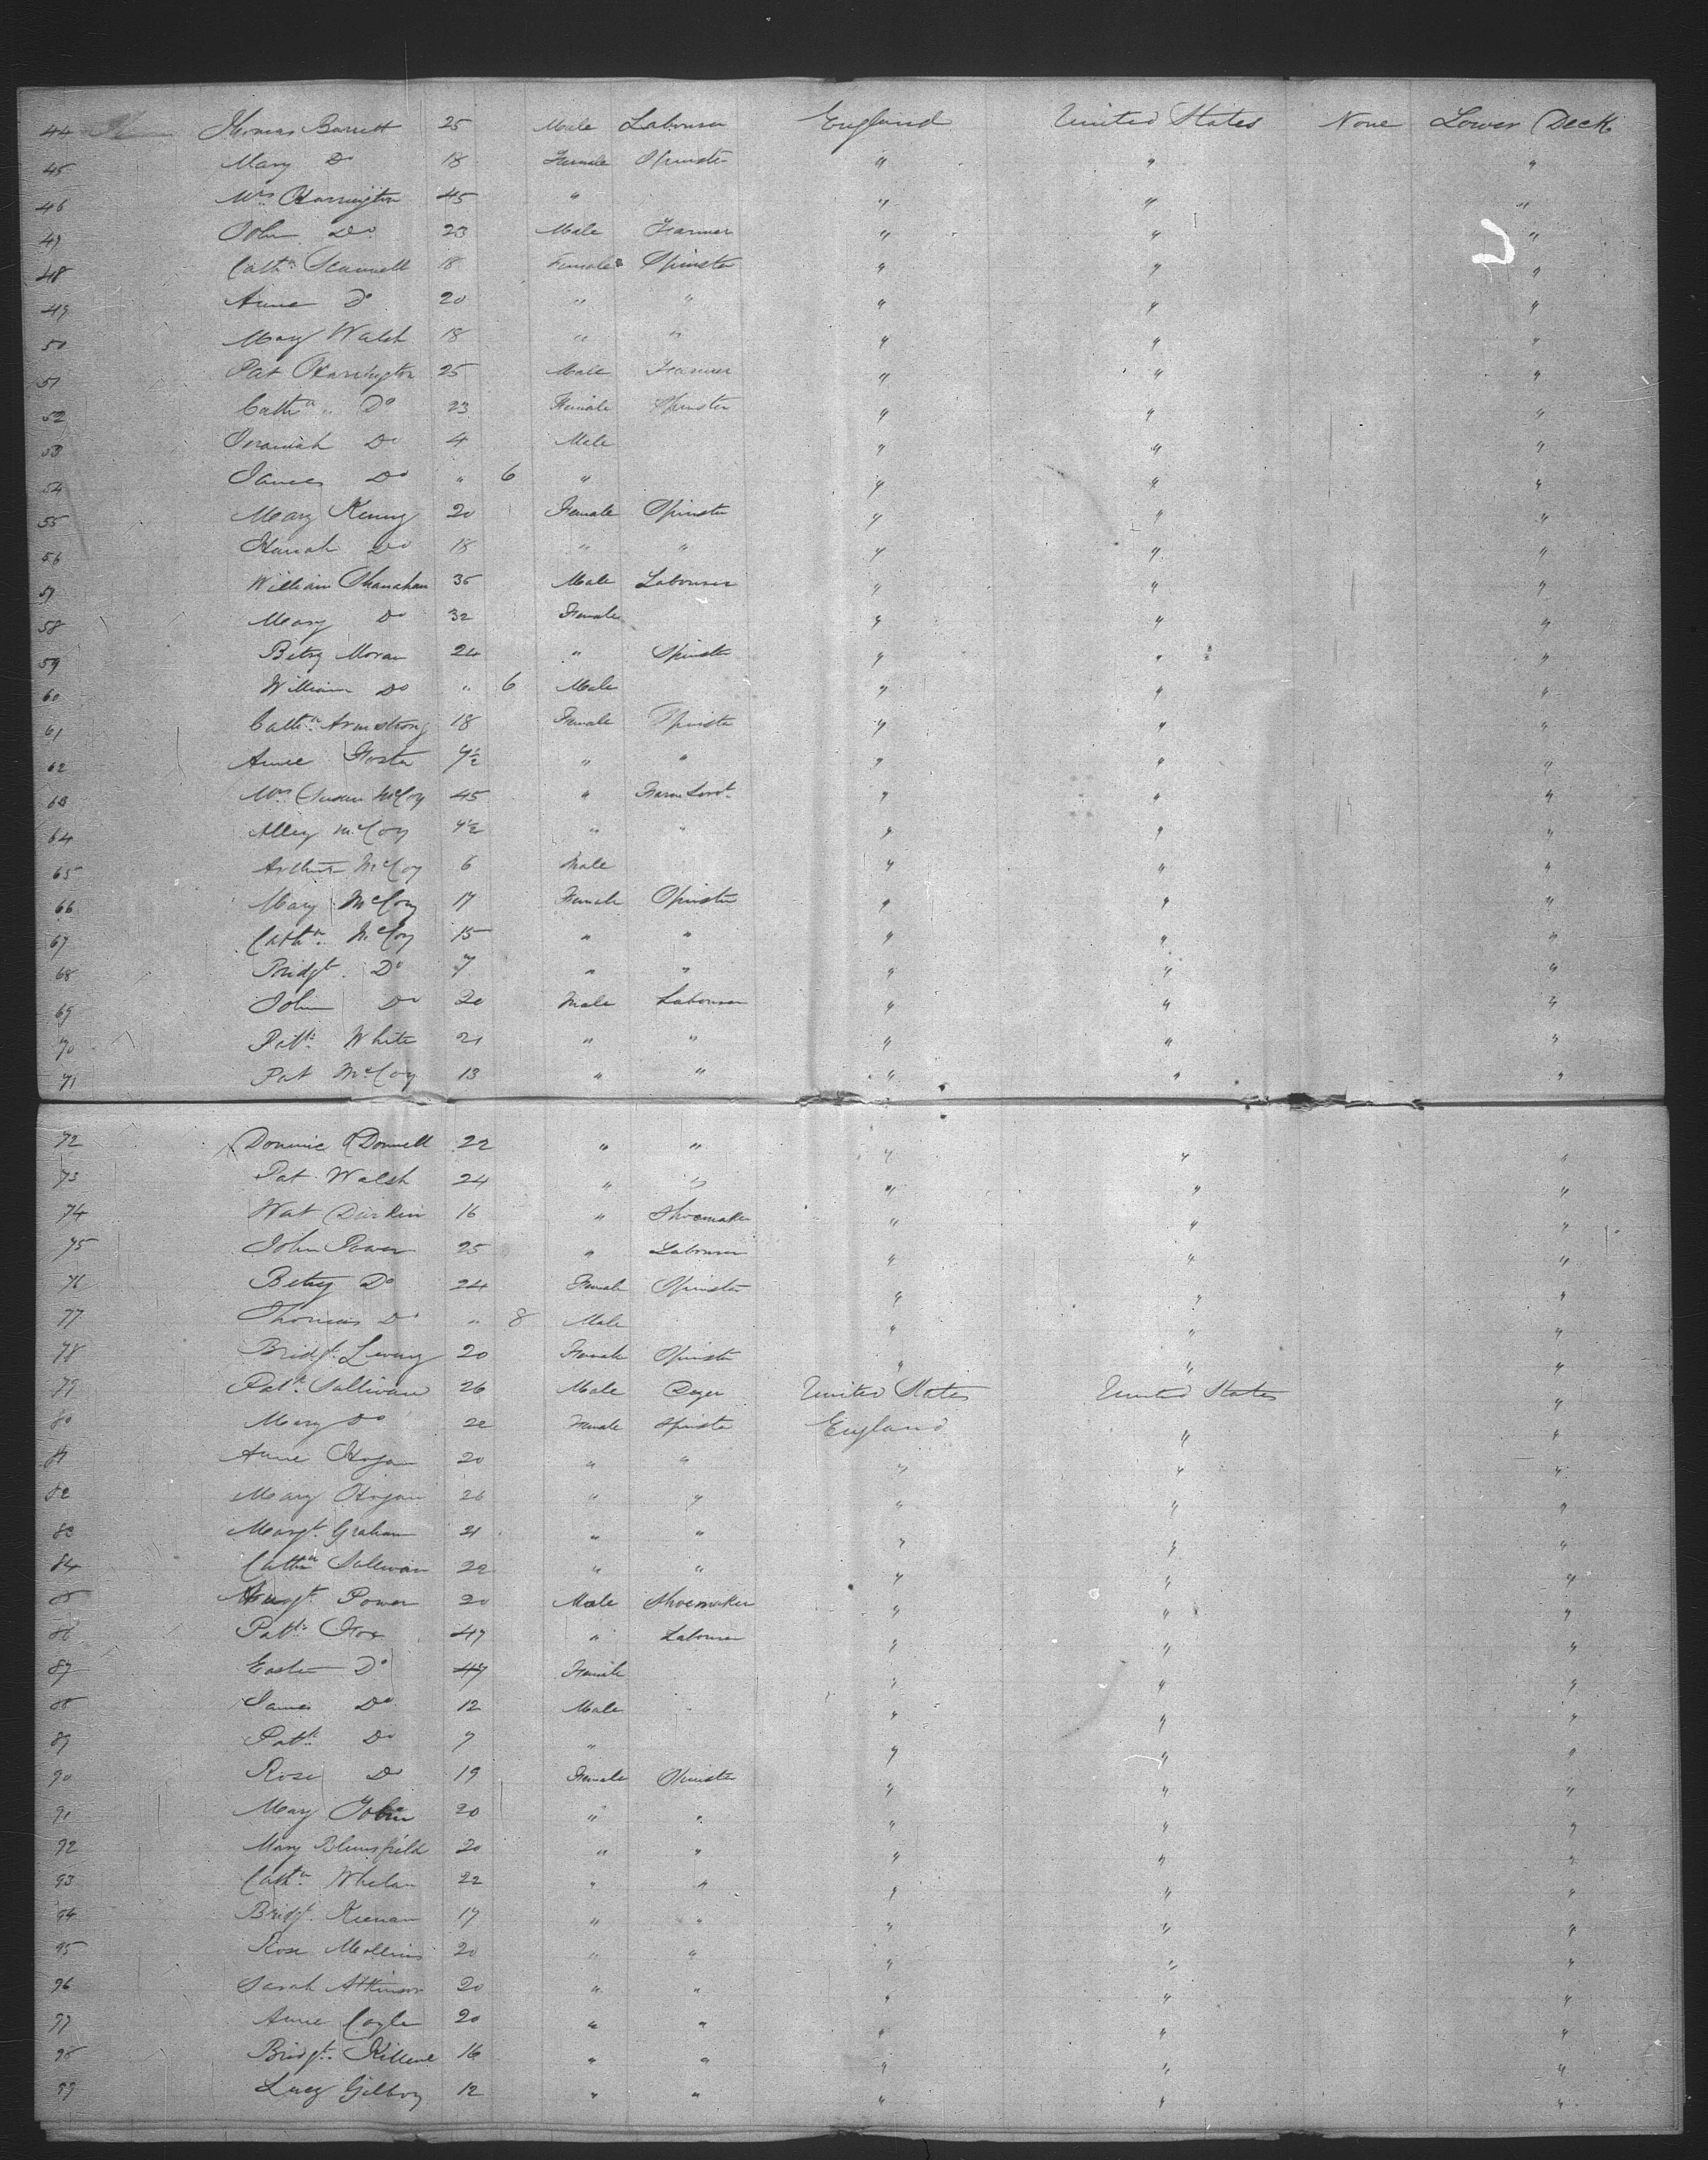 44 Thomas Barrett 25 Male Labourer England United States None Lower Deck
45 Mary Do 18 Female Spinster " " "
46 Mrs Harrington 45 " " " "
47 John Do 23 Male Farmer " " "
48 Cathn Scannell 18 Female Spinster " " "
49 Anne Do 20 " " " " "
50 Mary Walsh 18 " " " " "
51 Pat Harrington 25 Male Farmer " " "
52 Cathn " Do 23 Female Spinster " " "
53 Jeramiah Do 4 Male " " "
54 James Do " 6 " " " "
55 Mary Kenny 20 Female Spinster " " "
56 Hanah Do 18 " " " " "
57 William Shanahan 35 Male Labourer " " "
58 Mary Do 32 Female " " "
59 Betsy Moran 24 " Spinster " " "
60 William Do " 6 Male " " "
61 Cathn Armstrong 18 Female Spinster " " "
62 Anne Foster 9½ " " " " "
63 Mrs Susan McCoy 45 " Farm Servt " " "
64 Alley McCoy 9½ " " " " "
65 Arthur McCoy 6 Male " " "
66 Mary McCoy 17 Female Spinster " " "
67 Cathn McCoy 15 " " " " "
68 Bridgt Do 7 " " " " "
69 John Do 20 Male Labourer " " "
70 Patk White 21 " " " " "
71 Pat McCoy 13 " " " " "
72 Dominic O'Donnell 22 " " " " "
73 Pat Walsh 24 " " " " "
74 Wat Durkin 16 " Shoemaker " " "
75 John Power 25 " Labourer " " "
76 Betsy Do 24 Female Spinster " " "
77 Thomas Do " 8 Male " " "
78 Bridgt 20 Female Spinster " " "
79 Patk Sullivan 26 Male United States United States "
80 Mary Do 22 Female Spinster England " "
81 Anne Hogan 20 " " " " "
82 Mary Hogan 26 " " " " "
83 Margt Graham 21 " " " " "
84 Cathn Sullivan 22 " " " " "
85 Power 20 Male Shoemaker " " "
86 Patk Fox 47 " Labourer " " "
87 Easter Do 47 Female " " "
88 James Do 12 Male " " "
89 Patk Do 7 " " " "
90 Rose Do 19 Female Spinster " " "
91 Mary Tobin 20 " " " " "
92 Mary Blumsfield 20 " " " " "
93 Cathn Whelan 22 " " " " "
94 Bridgt Kiernan 17 " " " " "
95 Rose Mollins 20 " " " " "
96 Sarah Atkinson 20 " " " " "
97 Anne Coyle 20 " " " " "
98 Bridgt Killene 16 " " " " "
99 Lucy Gilboy 12 " " " " "